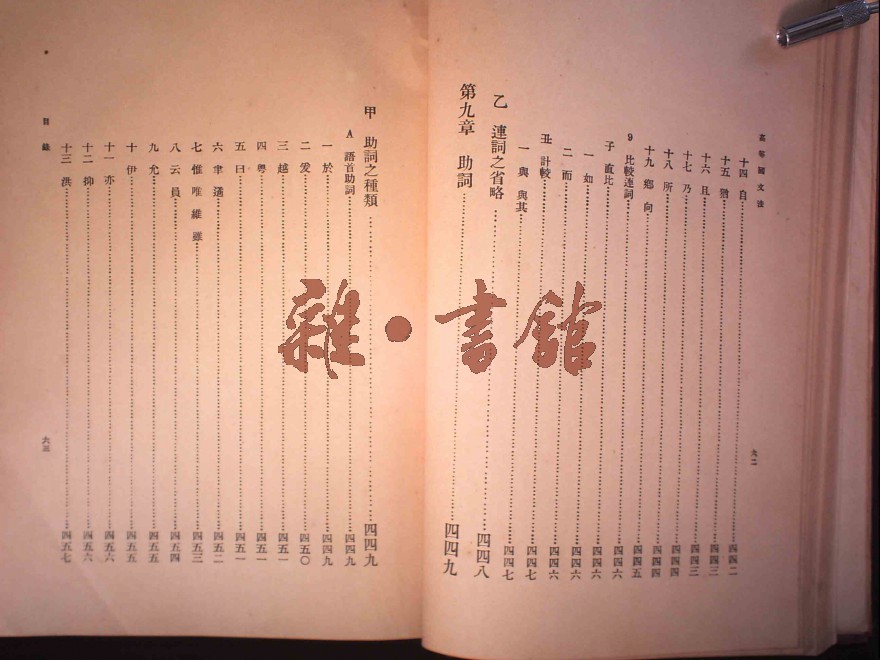 高等國文法
十四 自 四四二
十五 猶 四四二
十六 且 四四三
十七 乃 四四三
十八 所 四四四
十九 鄉 向 四四四
9 比較連詞 四四五
子 直比 四四六
一 如 四四六
二 而 四四六
丑 計較 四四六
一 與 與其 四四七
乙 連詞之省略 四四八
第九章 助詞 四四九
甲 助詞之種類 四四九
A 語首助詞 四四九
一 於 四四九
二 爰 四五〇
三 越 四五一
四 粵 四五一
五 曰 四五一
六 聿 遹 四五二
七 惟 唯 維 雖 四五三
八 云 員 四五四
九 允 四五五
十 伊 四五五
十一 亦 四五六
十二 抑 四五六
十三 洪 四五七
目錄
雜·書館